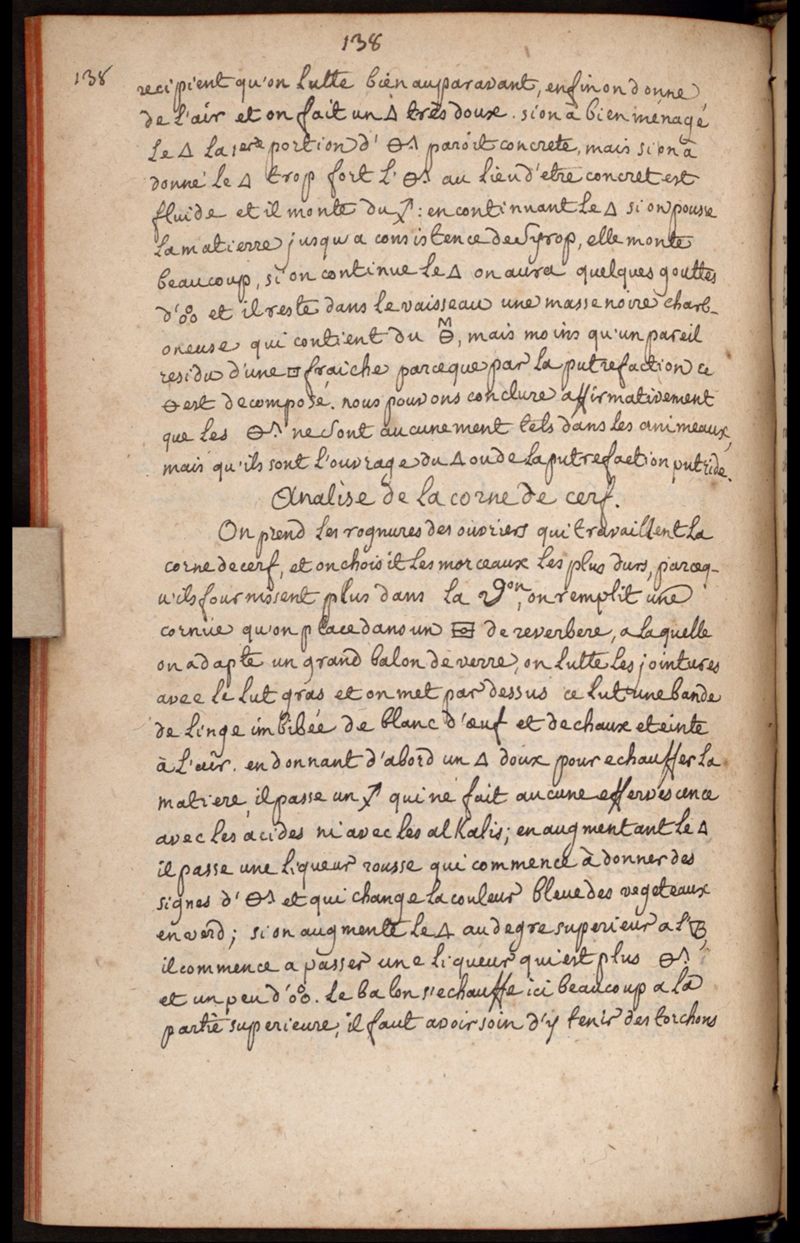 138
138
recipient qu'on lutte bien auparavant, enfin on donne
de l'air et on fait un 🜂 tres doux. si on a bien ménagé
Le 🜂 la 1ere portion d' 🜔^ paroit concrete, mais si on a
donné le 🜂 trop fort l' 🜔^ au lieu d'etre concret est
fluide et il monte du : en continuant le 🜂 si on pousse
la matierre jusqu'a consistence de Syrop, elle monte
beaucoup, si on continue le 🜂 on aura quelques gouttes
d'🝆 et il reste dans le vaisseau une masse noire charb-
oneuse qui contient du 🜔M, mais moins qu'un pareil
residu d'une □ fraiche parceque par la putrefaction ce
🜔 est decomposé. nous pouvons conclure affirmativement
que les 🜔^ ne sont aucunement tels dans les animeaux,
mais qu'ils sont l'ouvrage du 🜂 ou de la putrefaction putride.
Analise de la corne de cerf.
On prend les rognures des ouvriers qui travaillent la
corne de cerf, et on choisit les morceaux les plus durs, parceq-
u'ils fournissent plus dans la on, on remplit une
cornüe qu'on place dans un de reverbere, a laquelle
on adapte un grand balon de verre, on lutte les jointures
avec le lut gras et on met par dessus ce lut une bande
de linge imbibée de blanc d'œuf et de chaux eteinte
à l'air. en donnant d'abord un 🜂 doux pour echauffer la
matiere, il passe un qui ne fait aucune effervescence
avec les acides ni avec les alkalis; en augmentant le 🜂
il passe une liqueur rousse qui commence à donner des
signes d' 🜔^ et qui change la couleur bleue des vegeteaux
en verd; si on augmente le 🜂 au degre superieur a l'
il commence a passer une liqueur qui est plus 🜔^,
et un peu d'🝆. Le balon s'echauffe ici beaucoup a la
partie superieure, il faut avoir soin d'y tenir des torchons